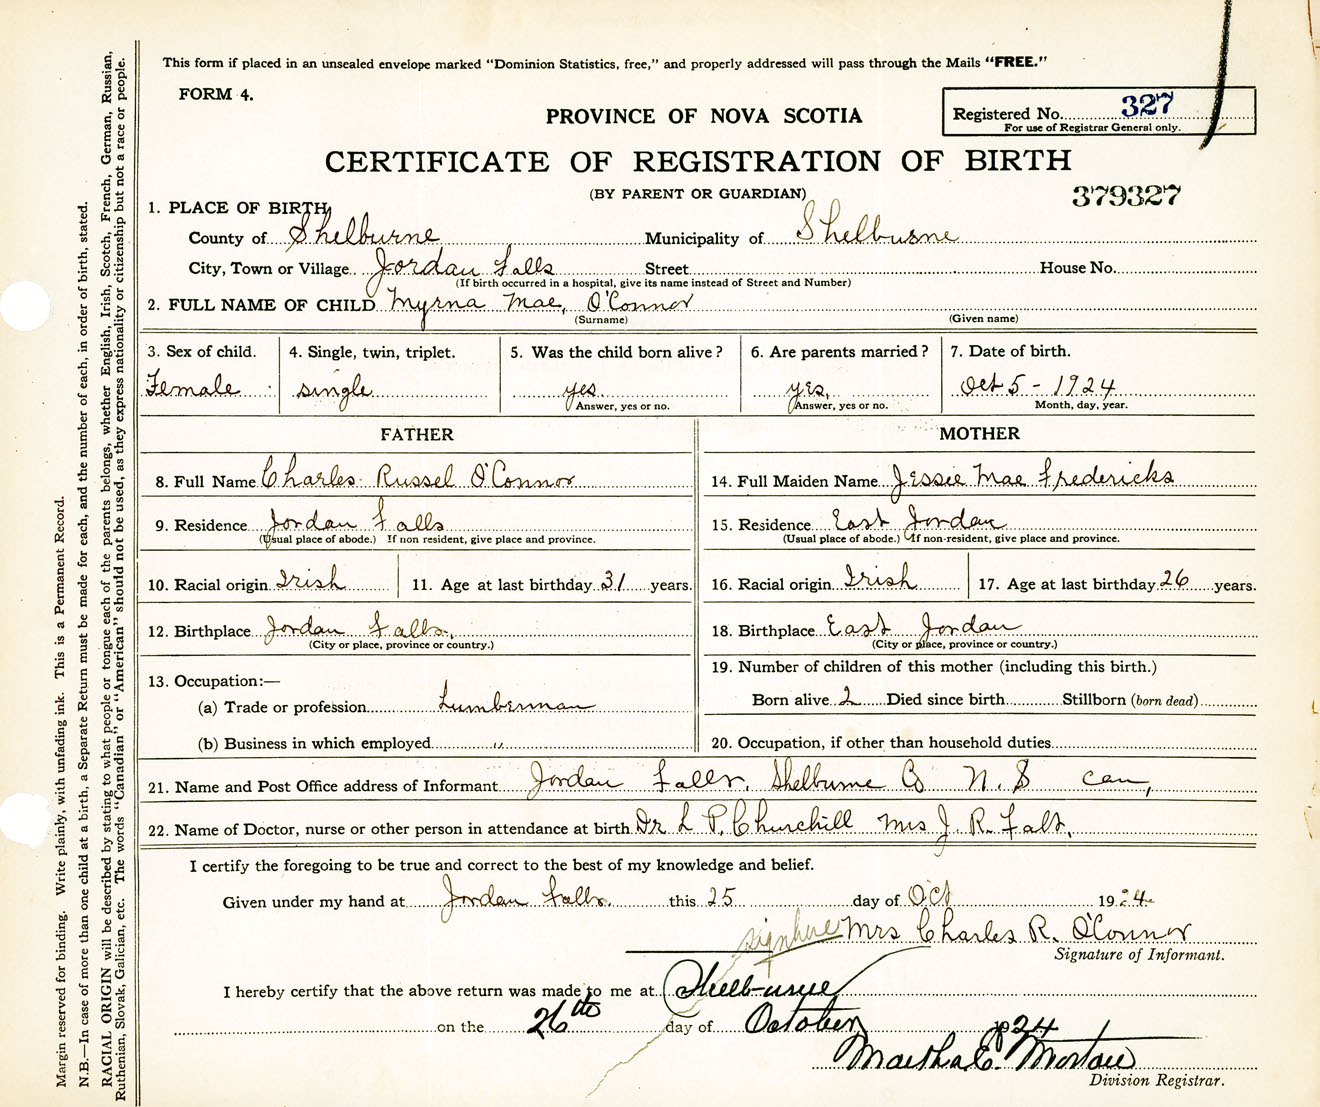 This form if placed in an unsealed envelope marked "Dominion Statistics, free," and properly addressed will pass through the Mails "FREE."
FORM 4.
PROVINCE OF NOVA SCOTIA
Registered No. 327
For use of Registrar General only.
CERTIFICATE OF REGISTRATION OF BIRTH
(BY PARENT OR GUARDIAN)
379327
1. PLACE OF BIRTH
County of Shelburne Municipality of Shelburne
City, Town or Village Jordan Falls Street House No.
(If birth occurred in a hospital, give its name instead of Street and Number)
2. FULL NAME OF CHILD Myrna Mae, O'Connor
(Surname) (Given name)
3. Sex of child. 4. Single, twin, triplet. 5. Was the child born alive? 6. Are parents married? 7. Date of birth.
Female single yes yes, Oct 5 - 1924
Answer, yes or no. Answer, yes or no. Month, day, year.
FATHER MOTHER
8. Full Name Charles Russel O'Connor 14. Full Maiden Name Jessie Mae Fredericks
9. Residence Jordan Falls 15. Residence East Jordan
(Usual place of abode.) If non resident, give place and province. (Usual place of abode.) If non-resident, give place and province.
10. Racial origin Irish 11. Age at last birthday 31 years. 16. Racial origin Irish 17. Age at last birthday 26 years.
12. Birthplace Jordan Falls. 18. Birthplace East Jordan
(City or place, province or country.) (City or place, province or country.)
13. Occupation:— 19. Number of children of this mother (including this birth.)
(a) Trade or profession Lumberman Born alive 2 Died since birth Stillborn (born dead)
(b) Business in which employed " 20. Occupation, if other than household duties
21. Name and Post Office address of Informant Jordan Falls. Shelburne Co N. S can,
22. Name of Doctor, nurse or other person in attendance at birth Dr L P. Churchill Mrs J. R. Falt.
I certify the foregoing to be true and correct to the best of my knowledge and belief.
Given under my hand at Jordan Falls. this 25 day of Oct 1924.
sign here Mrs Charles R. O'Connor
Signature of Informant.
I hereby certify that the above return was made to me at Shelburne
on the 26th day of October 1924
Martha E.
Division Registrar.
Margin reserved for binding. Write plainly, with unfading ink. This is a Permanent Record.
N.B.—In case of more than one child at a birth, a Separate Return must be made for each, and the number of each, in order of birth, stated.
RACIAL ORIGIN will be described by stating to what people or tongue each of the parents belongs, whether English, Irish, Scotch, French, German, Russian,
Ruthenian, Slovak, Galician, etc. The words "Canadian" or "American" should not be used, as they express nationality or citizenship but not a race or people.